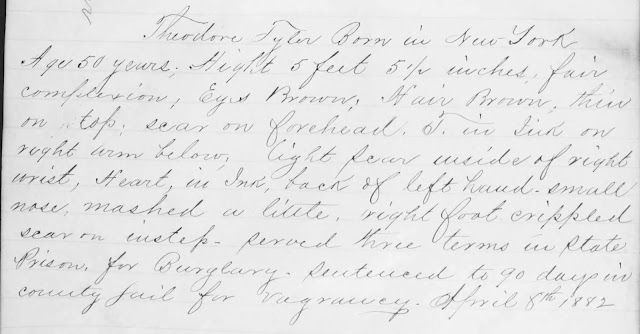 Theodore Tyler Born in New York
Age 50 years; Hight 5 feet 5 1/2 inches, fair
complexion, Eys Brown; Hair Brown, thin
on top; scar on forehead. T. in Ink on
right arm below; light scar inside of right
wrist, Heart, in Ink, back of left hand - small
nose, mashed a little, right foot crippled
scar on instep - served three terms in State
Prison, for Burglary - sentenced to 90 days in
county Jail for vagrancy - April 8th 1882